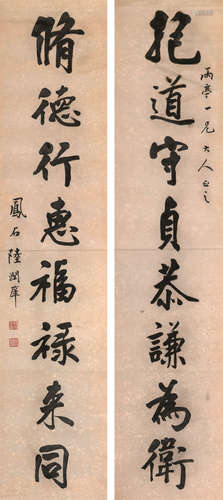 抱道守貞恭謙為衛
雨亭一兄大人正之
脩德行惠福祿来同
鳳石陸潤庠